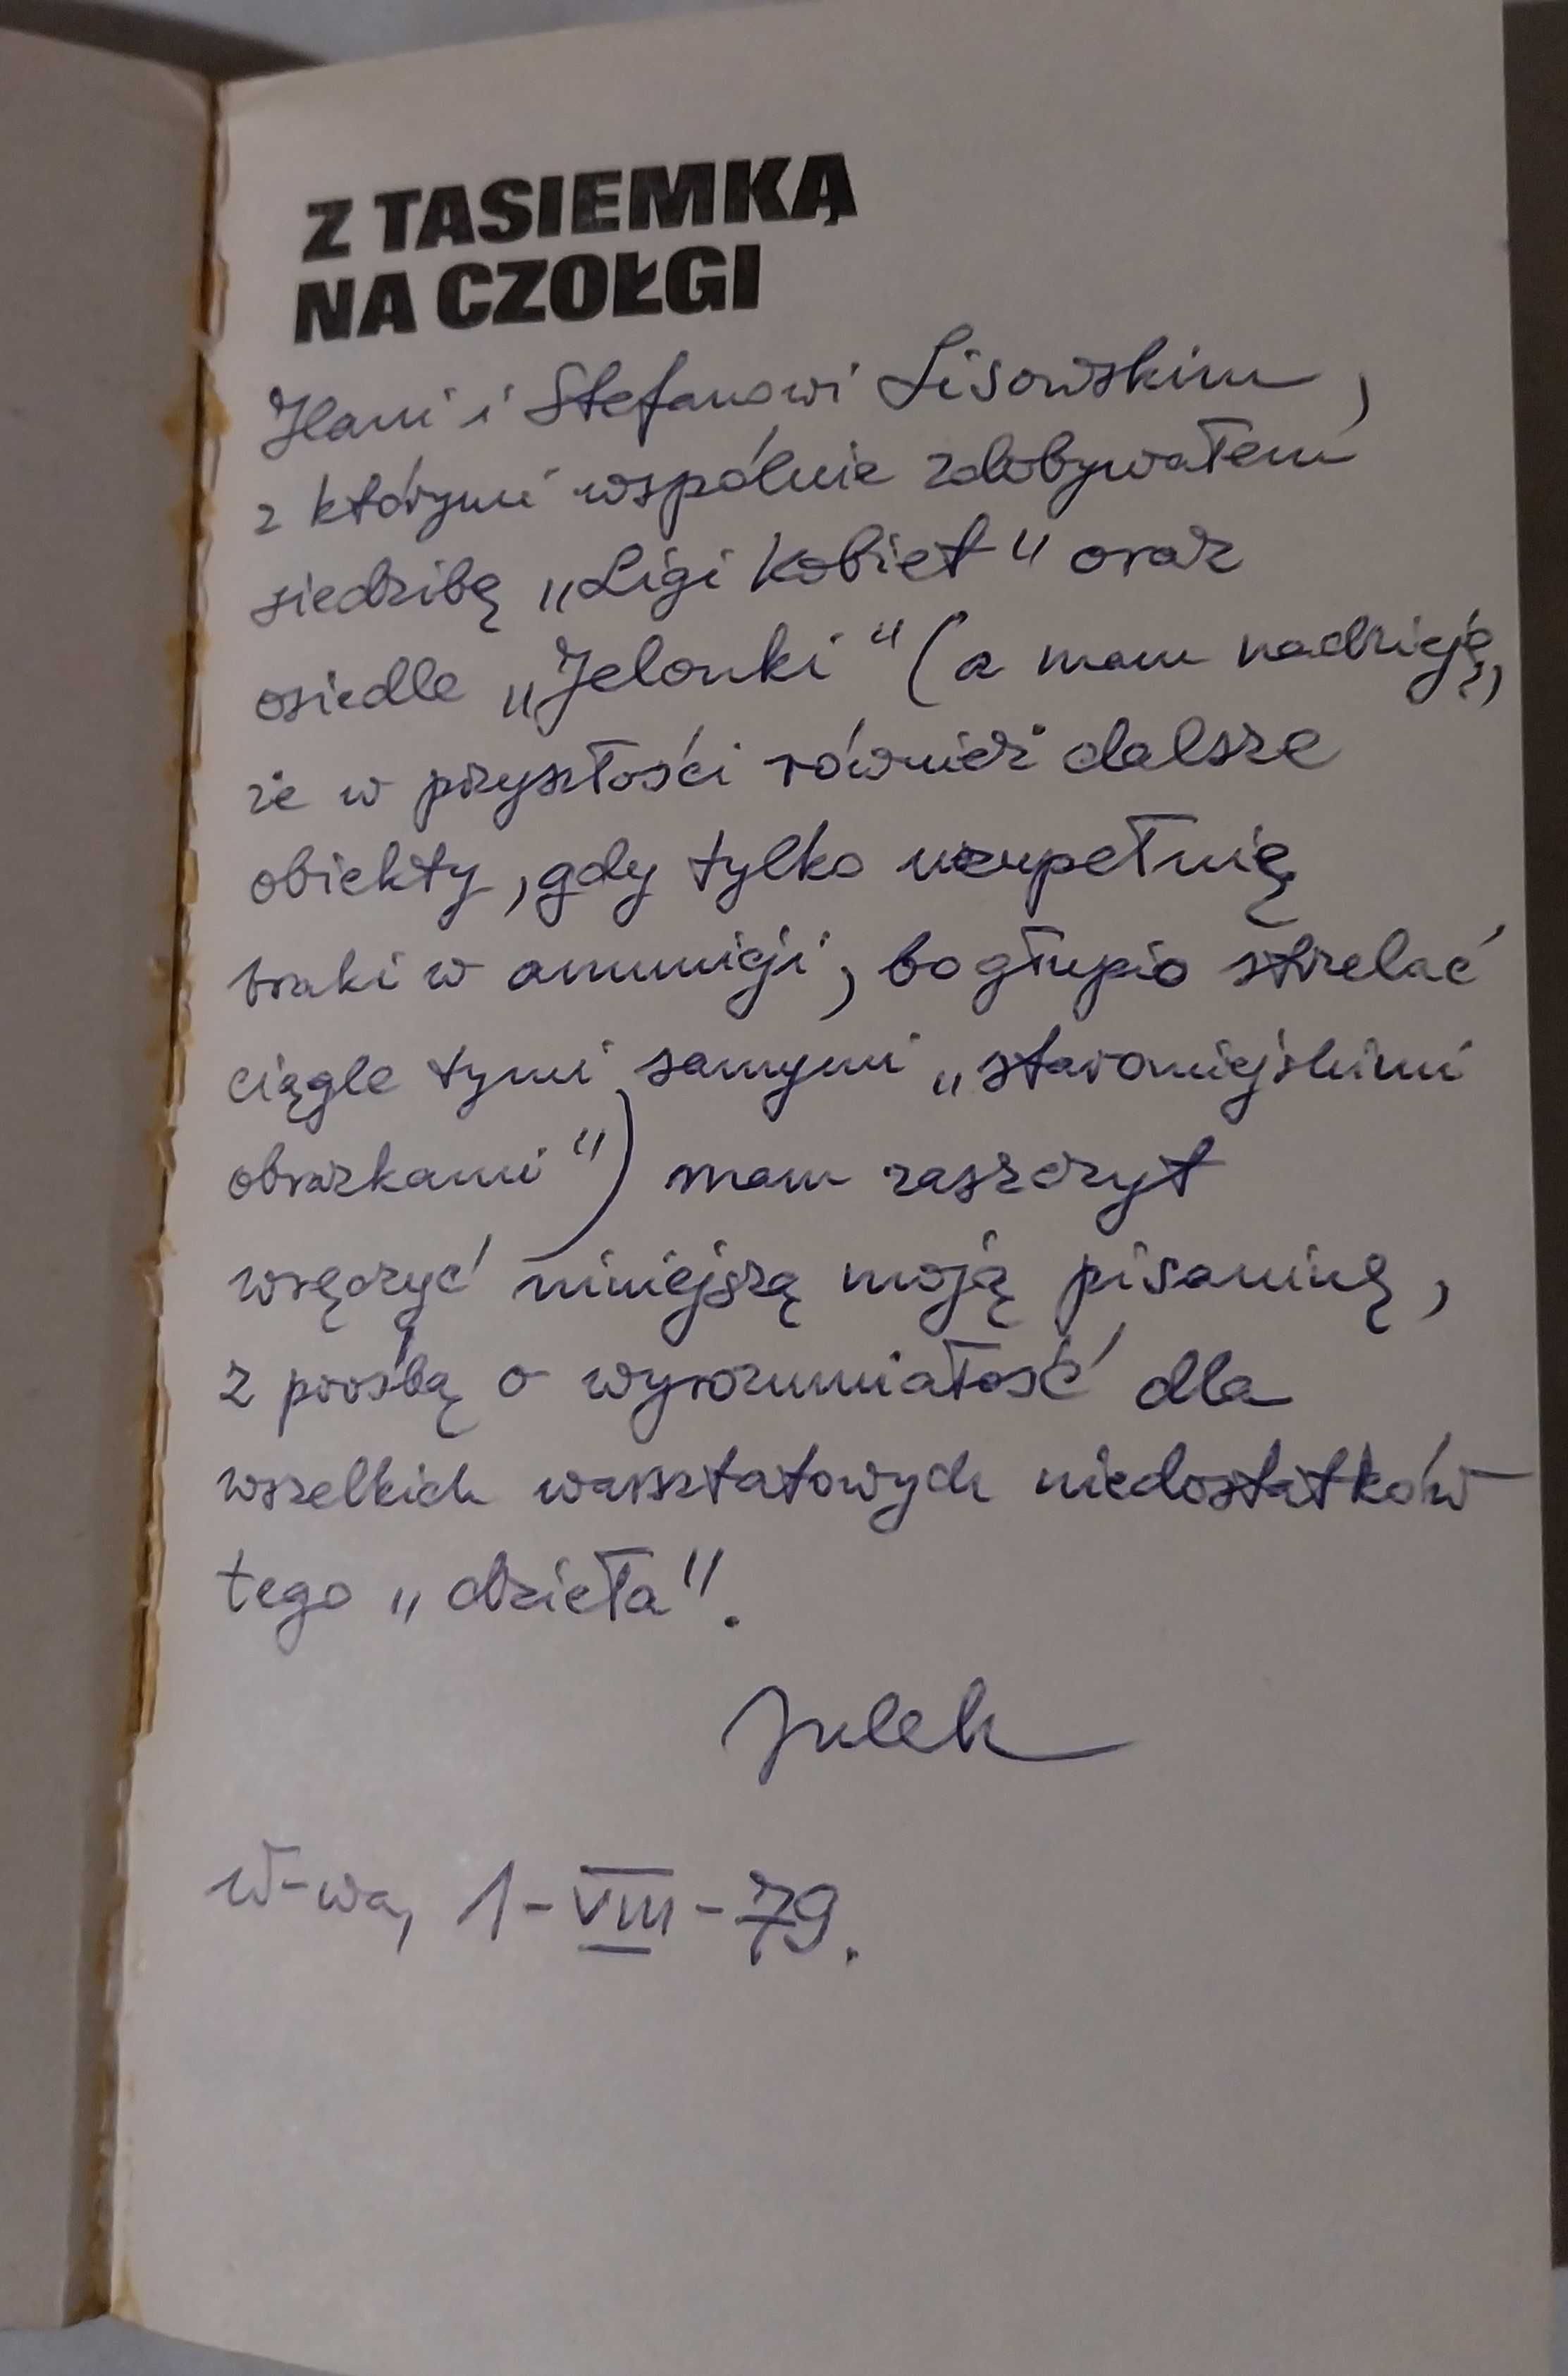 Z TASIEMKĄ
NA CZOŁGI
Hani i Stefanowi Lisowskim,
z którymi wspólnie zdobywałem
siedzibę „Ligi Kobiet" oraz
osiedle „Jelonki" (a mam nadzieję,
że w przyszłości również dalsze
obiekty, gdy tylko uzupełnię
braki w amunicji, bo głupio strzelać
ciągle tymi samymi „staromiejskimi
obrazkami") mam zaszczyt
wręczyć niniejszą moją pisaninę,
z prośbą o wyrozumiałość dla
wszelkich warsztatowych niedostatków
tego „dzieła".
Julek
W-wa, 1-VIII-79.